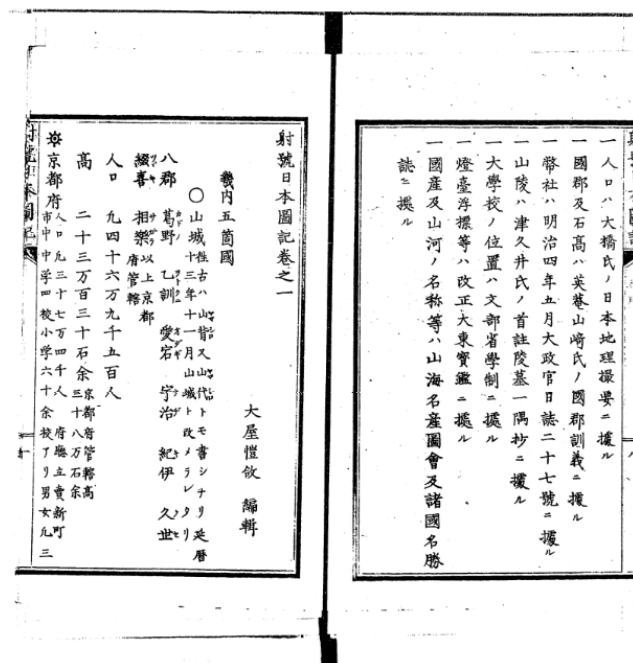 一人口ハ大橋氏ノ日本地理撮要ニ據ル
一國郡及石高ハ英菴山﨑氏ノ國郡訓義ニ據ル
一幣社ハ明治四年五月大政官日誌二十七號ニ據ル
一山陵ハ津久井氏ノ首註陵墓一隅抄ニ據ル
一大學校ノ位置ハ文部省學制ニ據ル
一燈臺浮標等ハ改正大東寶鑑ニ據ル
一國産及山河ノ名称等ハ山海名産圖會及諸國名勝
誌ニ據ル
八
射號日本圖記巻之一
大屋愷敆 編輯
畿内五箇國
〇山城 徃古ハ山背又山代トモ書シナリ延暦
十三年十一月山城ト改メラレタリ
八郡 葛野 乙訓 愛宕 宇治 紀伊 久世
綴喜 相樂 以上京都
府管轄
人口 九四十六万九千五百人
高 二十三万百三十石余 京都府管轄高
三十八万石余
京都府 人口凡三十七万四千人 府廳立賣新町
市中中学四校小学六十余校アリ男女凡三